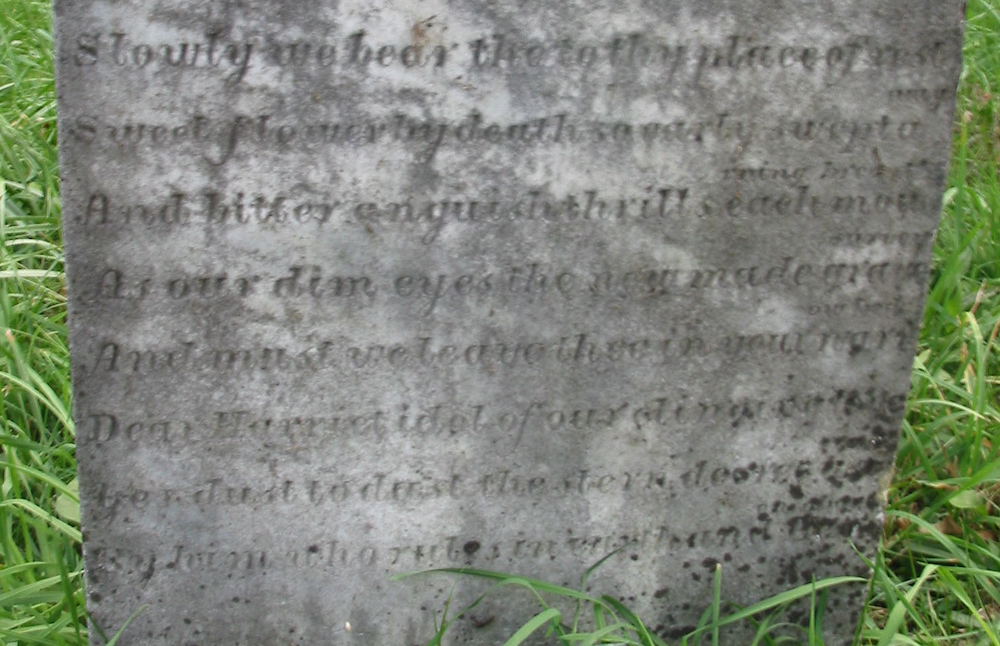 Slowly we bear the to thy place of rest
Sweet flower by death so early swept a
way
And bitter anguish thrills each mour
ning breast
As our dim eyes the new made grave
survey
And must we leave thee in you narrow
Dear Harriet idol of our
Yes dust to dust the stern decree
By him who rules in earth and